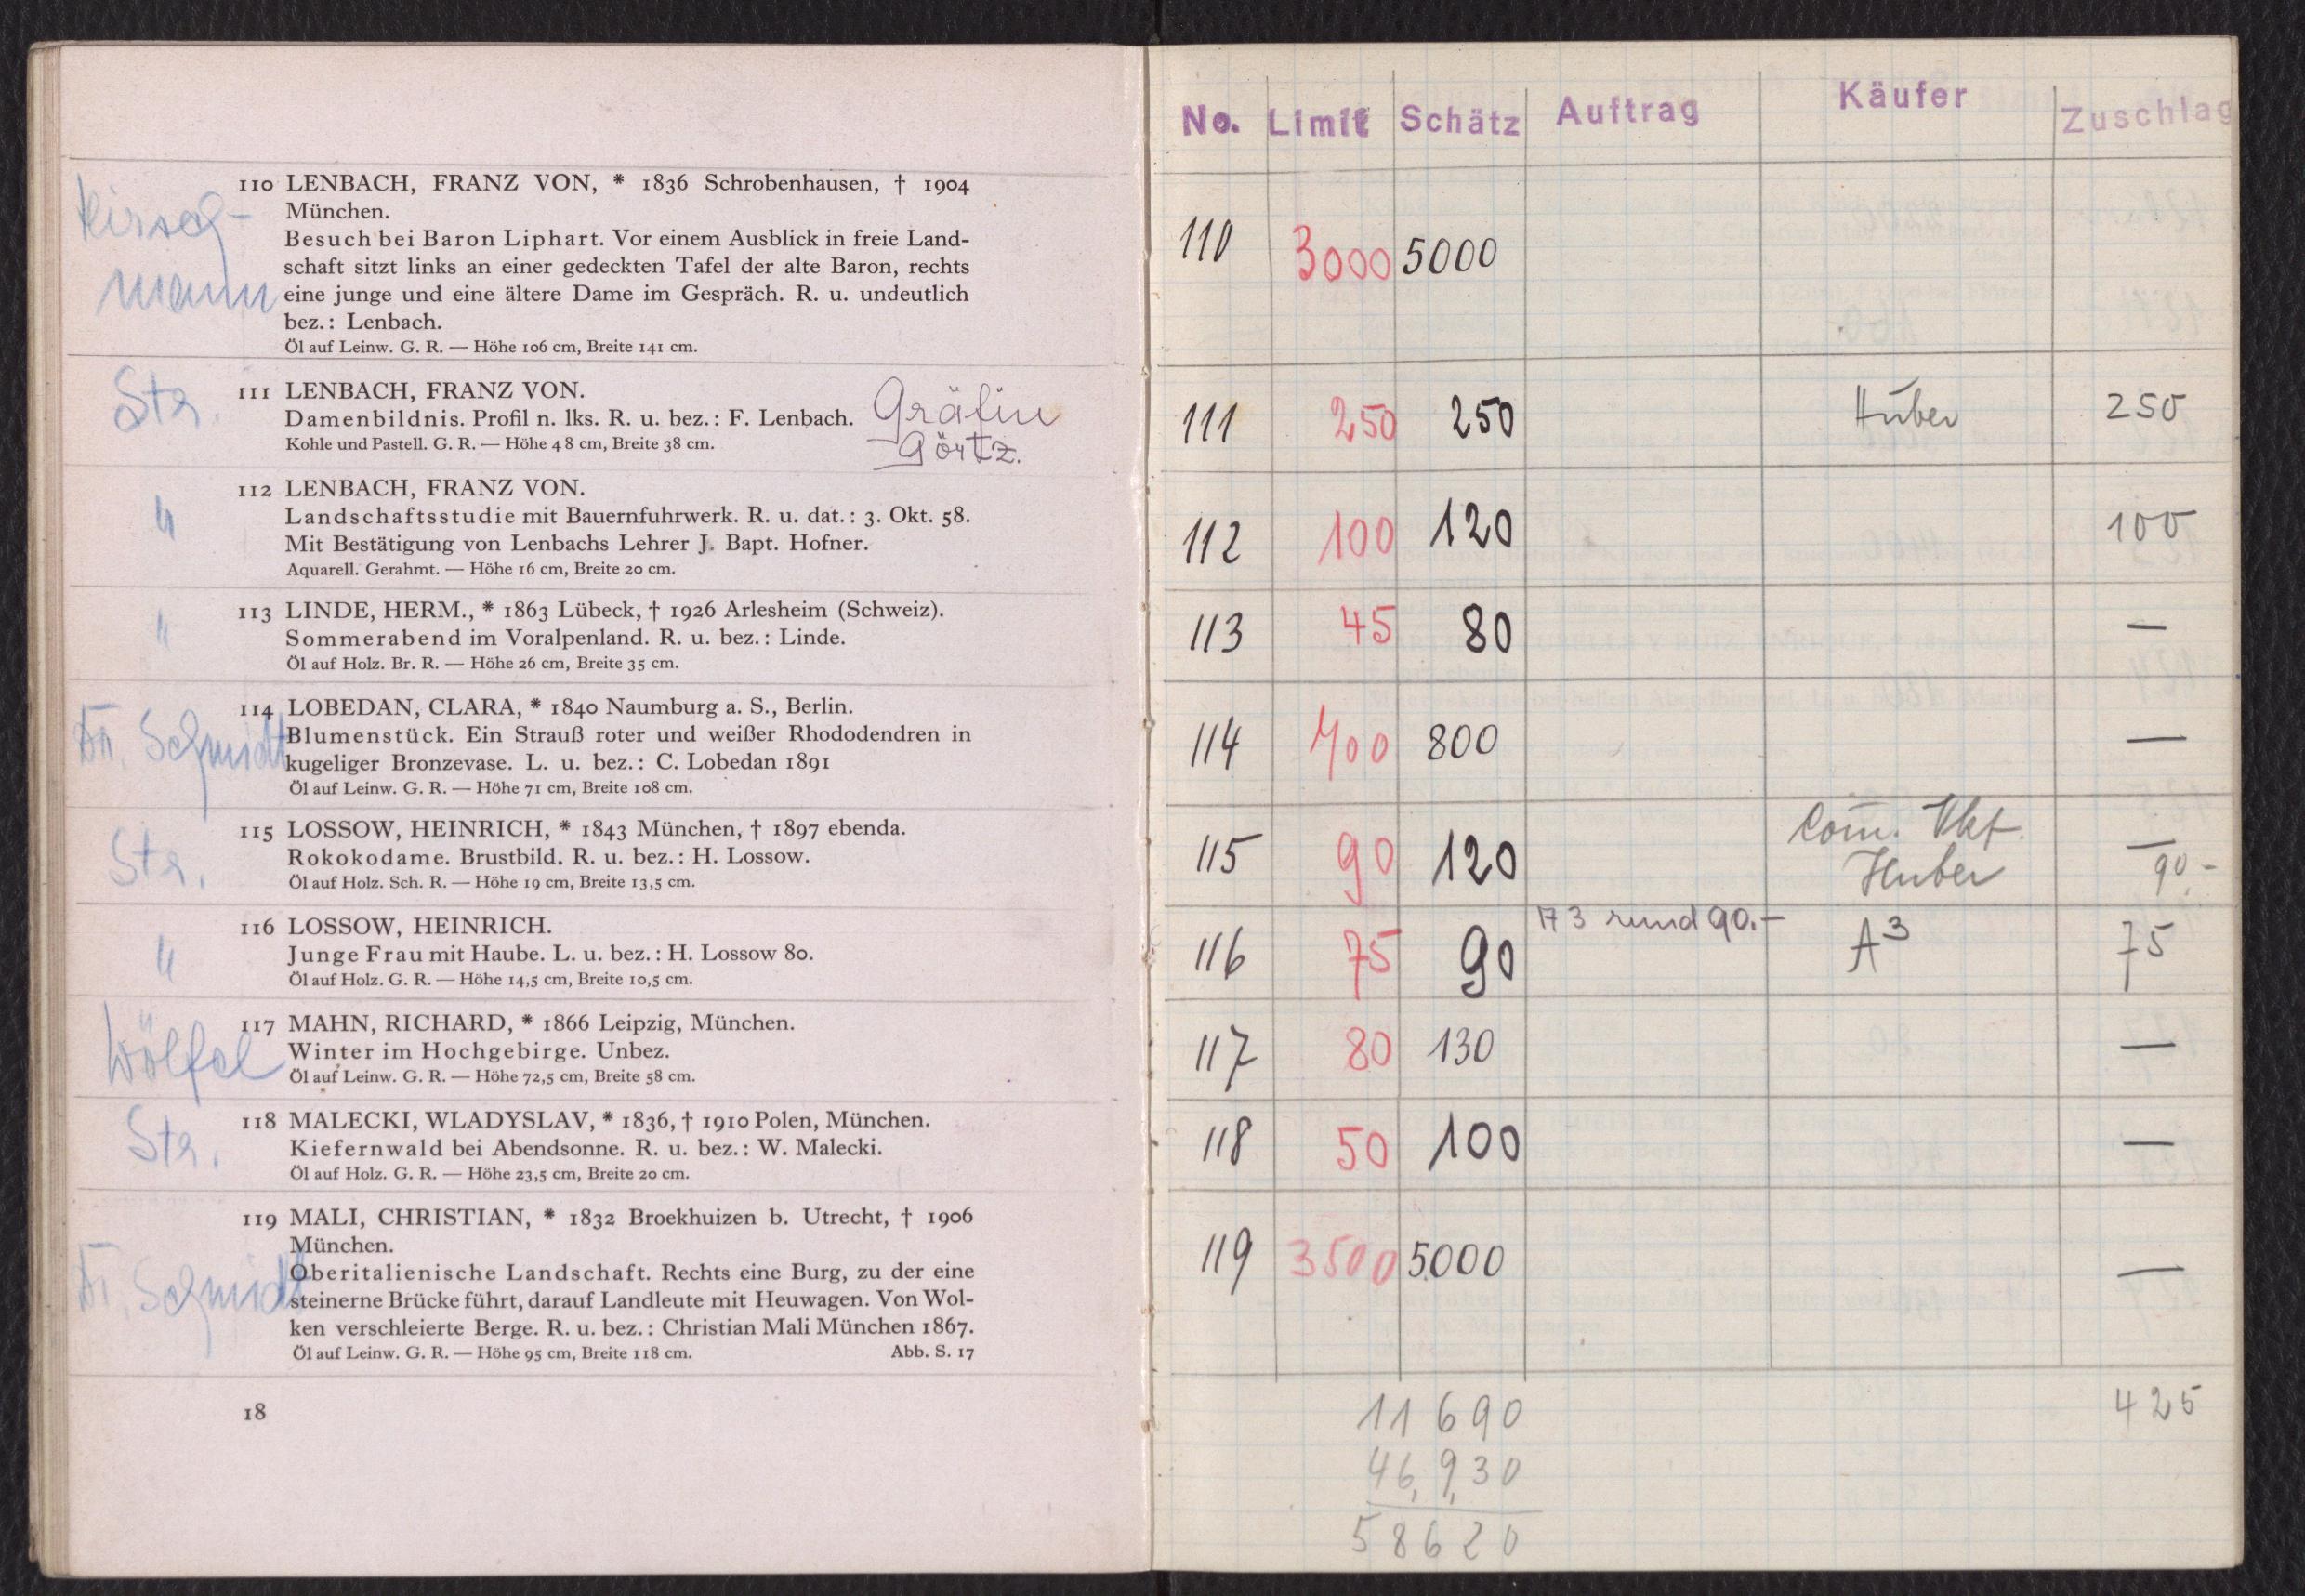 110 LENBACH, FRANZ VON, * 1836 Schrobenhausen, † 1904
München.
Besuch bei Baron Liphart. Vor einem Ausblick in freie Land-
schaft sitzt links an einer gedeckten Tafel der alte Baron, rechts
eine junge und eine ältere Dame im Gespräch. R. u. undeutlich
bez.: Lenbach.
Öl auf Leinw. G. R. — Höhe 106 cm, Breite 141 cm.
Hirsch-
mann
111 LENBACH, FRANZ VON.
Damenbildnis. Profil n. lks. R. u. bez.: F. Lenbach.
Kohle und Pastell. G. R. — Höhe 48 cm, Breite 38 cm.
Str.
Gräfin
Görtz.
112 LENBACH, FRANZ VON.
Landschaftsstudie mit Bauernfuhrwerk. R. u. dat.: 3. Okt. 58.
Mit Bestätigung von Lenbachs Lehrer J. Bapt. Hofner.
Aquarell. Gerahmt. — Höhe 16 cm, Breite 20 cm.
"
113 LINDE, HERM., * 1863 Lübeck, † 1926 Arlesheim (Schweiz).
Sommerabend im Voralpenland. R. u. bez.: Linde.
Öl auf Holz. Br. R. — Höhe 26 cm, Breite 35 cm.
"
114 LOBEDAN, CLARA, * 1840 Naumburg a. S., Berlin.
Blumenstück. Ein Strauß roter und weißer Rhododendren in
kugeliger Bronzevase. L. u. bez.: C. Lobedan 1891
Öl auf Leinw. G. R. — Höhe 71 cm, Breite 108 cm.
Schmidt
115 LOSSOW, HEINRICH, * 1843 München, † 1897 ebenda.
Rokokodame. Brustbild. R. u. bez.: H. Lossow.
Öl auf Holz. Sch. R. — Höhe 19 cm, Breite 13,5 cm.
Str.
116 LOSSOW, HEINRICH.
Junge Frau mit Haube. L. u. bez.: H. Lossow 80.
Öl auf Holz. G. R. — Höhe 14,5 cm, Breite 10,5 cm.
"
117 MAHN, RICHARD, * 1866 Leipzig, München.
Winter im Hochgebirge. Unbez.
Öl auf Leinw. G. R. — Höhe 72,5 cm, Breite 58 cm.
Wölfel
118 MALECKI, WLADYSLAV, * 1836, † 1910 Polen, München.
Kiefernwald bei Abendsonne. R. u. bez.: W. Malecki.
Öl auf Holz. G. R. — Höhe 23,5 cm, Breite 20 cm.
Str.
119 MALI, CHRISTIAN, * 1832 Broekhuizen b. Utrecht, † 1906
München.
Oberitalienische Landschaft. Rechts eine Burg, zu der eine
steinerne Brücke führt, darauf Landleute mit Heuwagen. Von Wol-
ken verschleierte Berge. R. u. bez.: Christian Mali München 1867.
Öl auf Leinw. G. R. — Höhe 95 cm, Breite 118 cm. Abb. S. 17
Schmidt
18
No. Limit Schätz Auftrag Käufer Zuschlag
110 3000 5000
111 250 250 Huber 250
112 100 120 100
113 45 80 —
114 400 800 —
115 90 120 Com. Vkf. —
Huber 90.-
116 75 90 rund 90.- A3 75
117 80 130 —
118 50 100 —
119 3500 5000 —
11690 425
46,930
58620